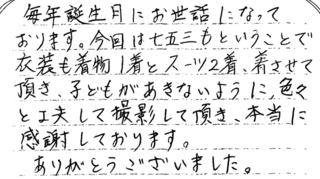 毎年誕生月にお世話になって
おります。今回は七五三もということで
衣装も着物1着とスーツ2着、着させて
頂き、子どもがあきないように、色々
と工夫して撮影して頂き、本当に
感謝しております。
ありがとうございました。